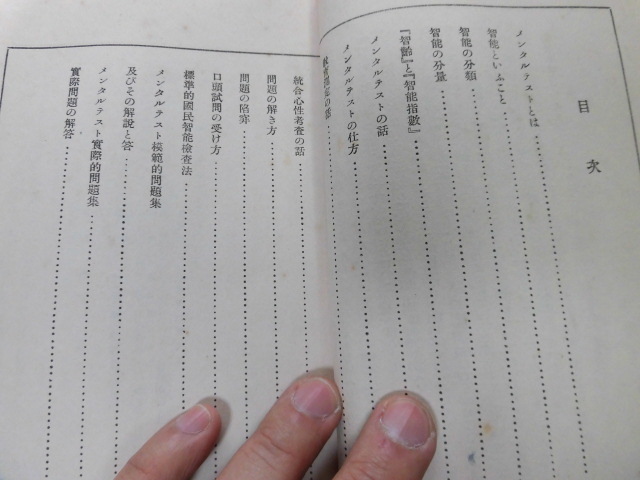 目次
メンタルテストとは
智能といふこと
智能の分類
智能の分量
『智齡』と『智能指數』
メンタルテストの話
メンタルテストの仕方
統合心性考査の話
問題の解き方
問題の陷穽
口頭試問の受け方
標準的國民智能檢査法
メンタルテスト模範的問題集
及びその解説と答
メンタルテスト實際的問題集
實際問題の解答